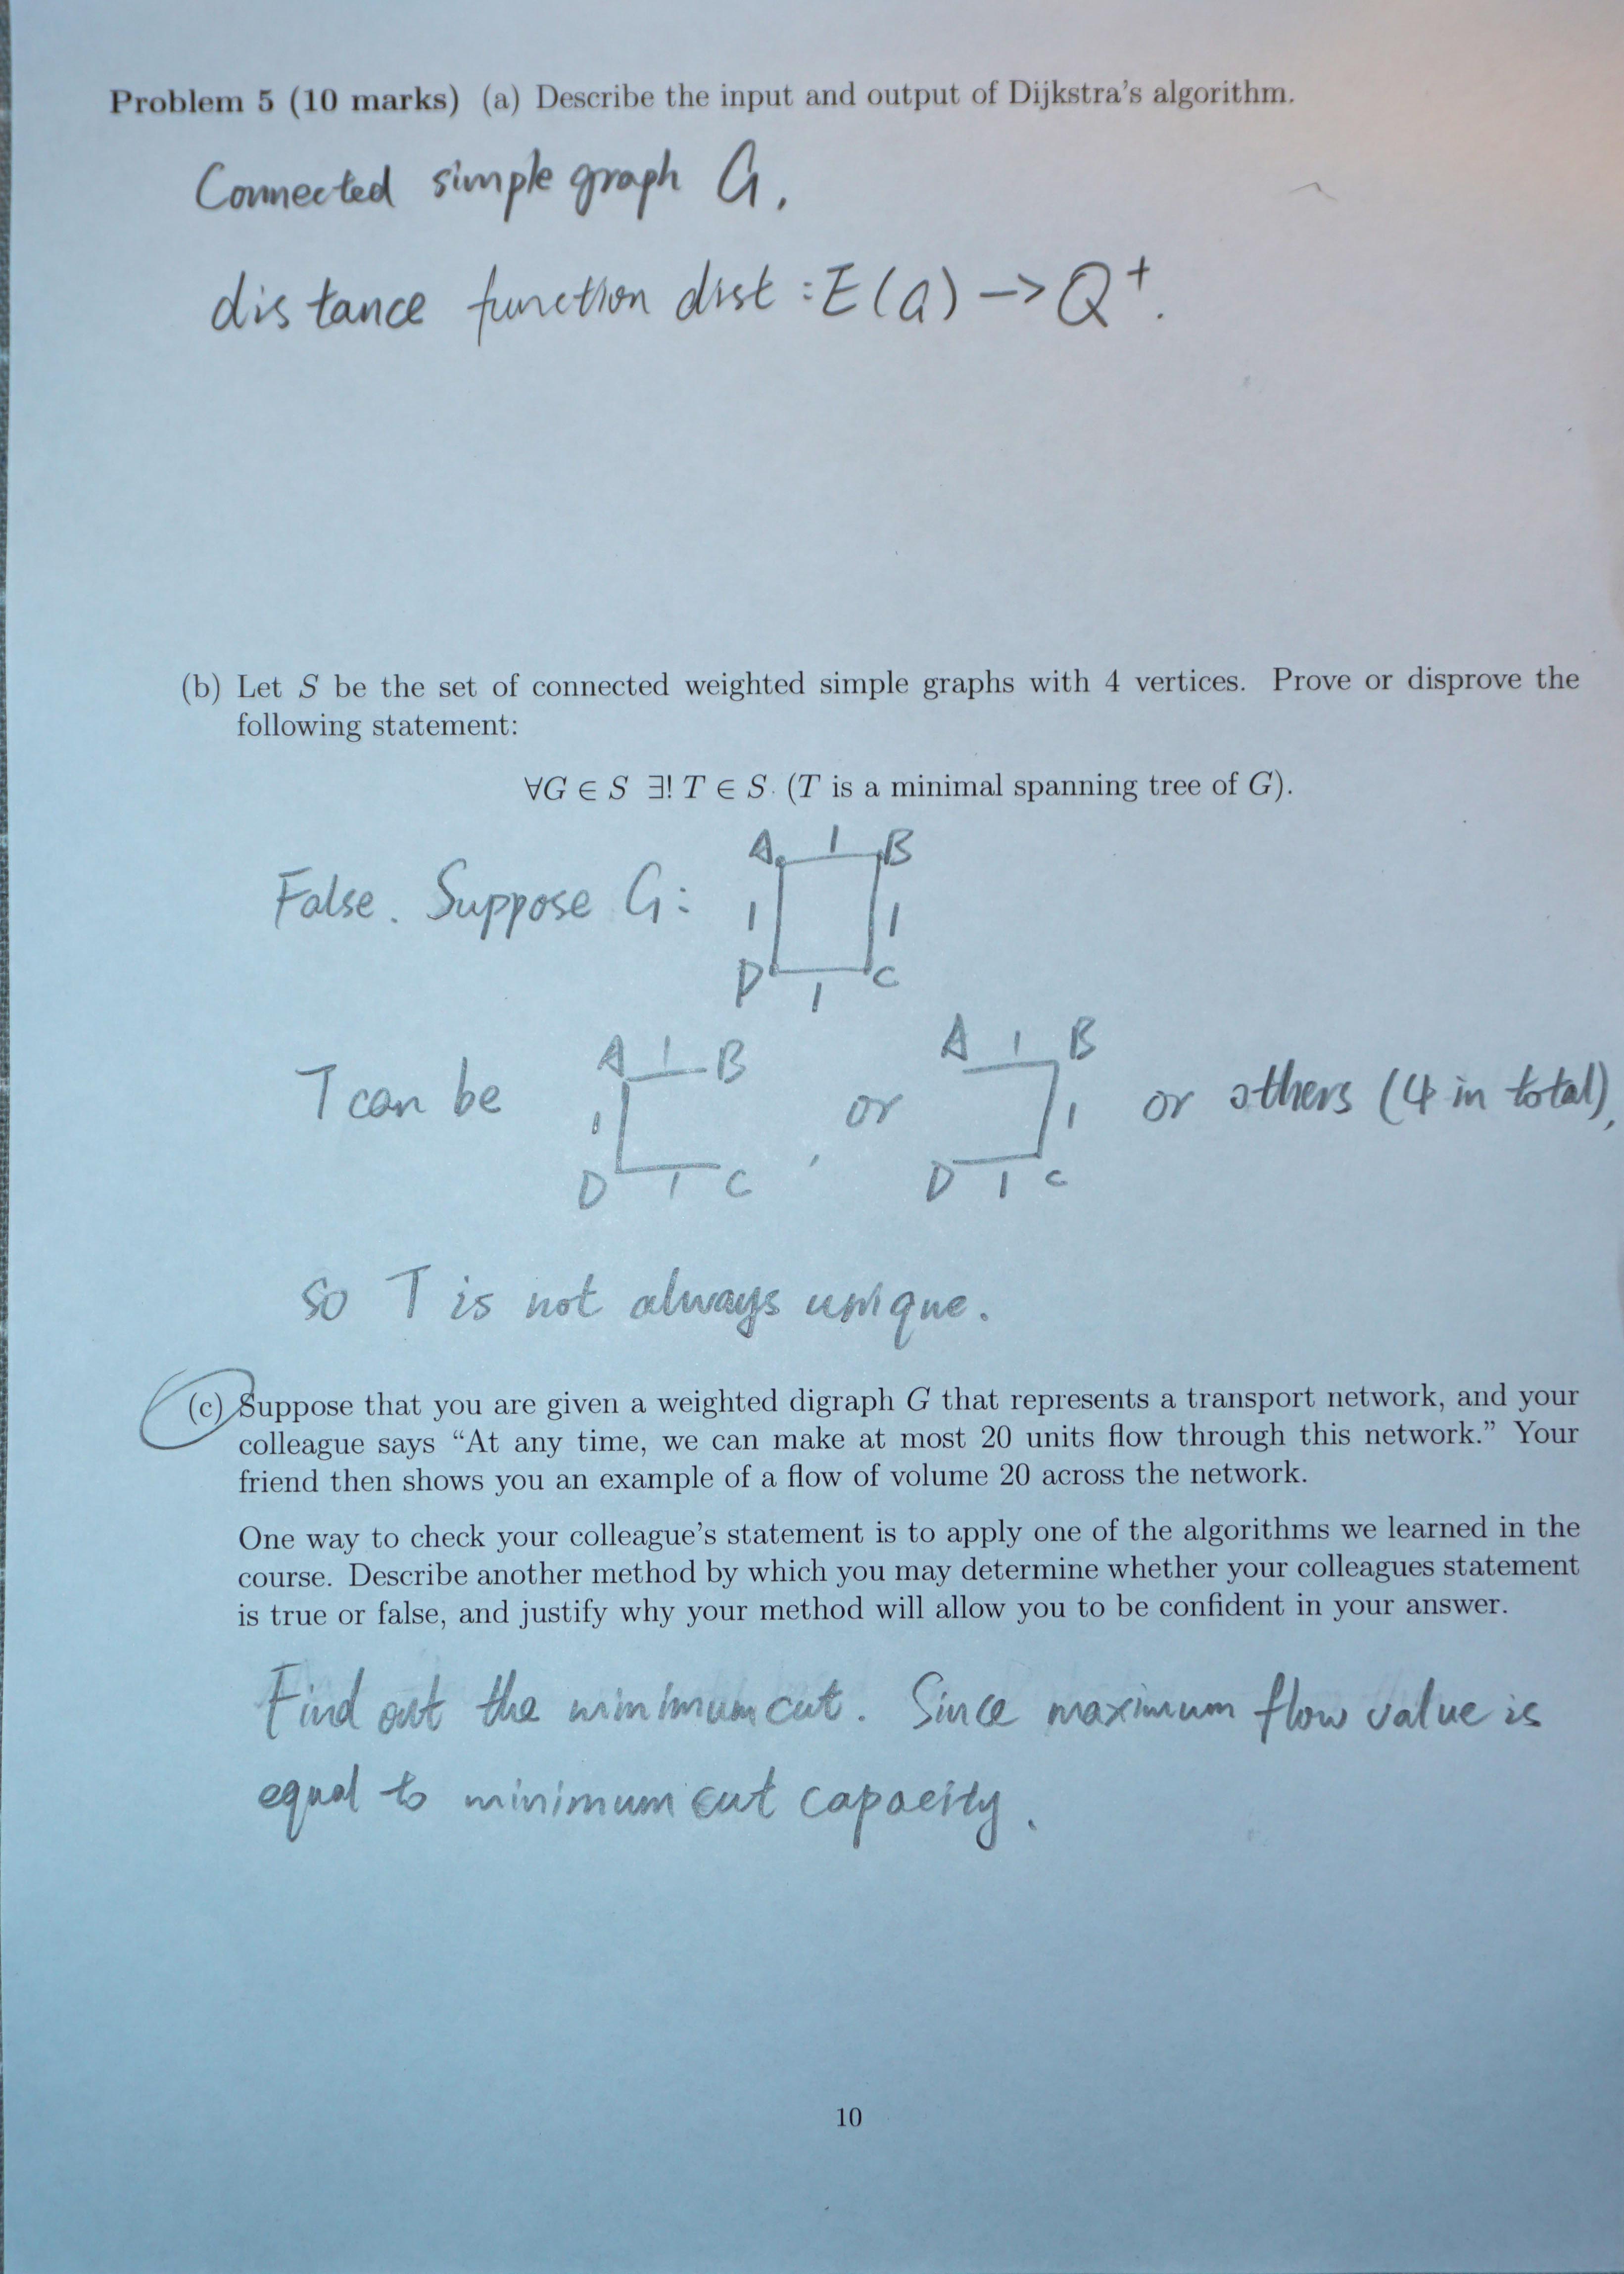 Problem 5 (10 marks) (a) Describe the input and output of Dijkstra's algorithm.
Connected simple graph G,
distance function dist : E(G) -> Q⁺.
(b) Let S be the set of connected weighted simple graphs with 4 vertices. Prove or disprove the
following statement:
∀G ∈ S ∃! T ∈ S. (T is a minimal spanning tree of G).
A 1 B
False. Suppose G: 1 1
D 1 C
A 1 B A 1 B
T can be 1 , or 1 or others (4 in total),
D 1 C D 1 C
so T is not always unique.
(c) Suppose that you are given a weighted digraph G that represents a transport network, and your
colleague says “At any time, we can make at most 20 units flow through this network.” Your
friend then shows you an example of a flow of volume 20 across the network.
One way to check your colleague's statement is to apply one of the algorithms we learned in the
course. Describe another method by which you may determine whether your colleagues statement
is true or false, and justify why your method will allow you to be confident in your answer.
Find out the minimum cut. Since maximum flow value is
equal to minimum cut capacity.
10